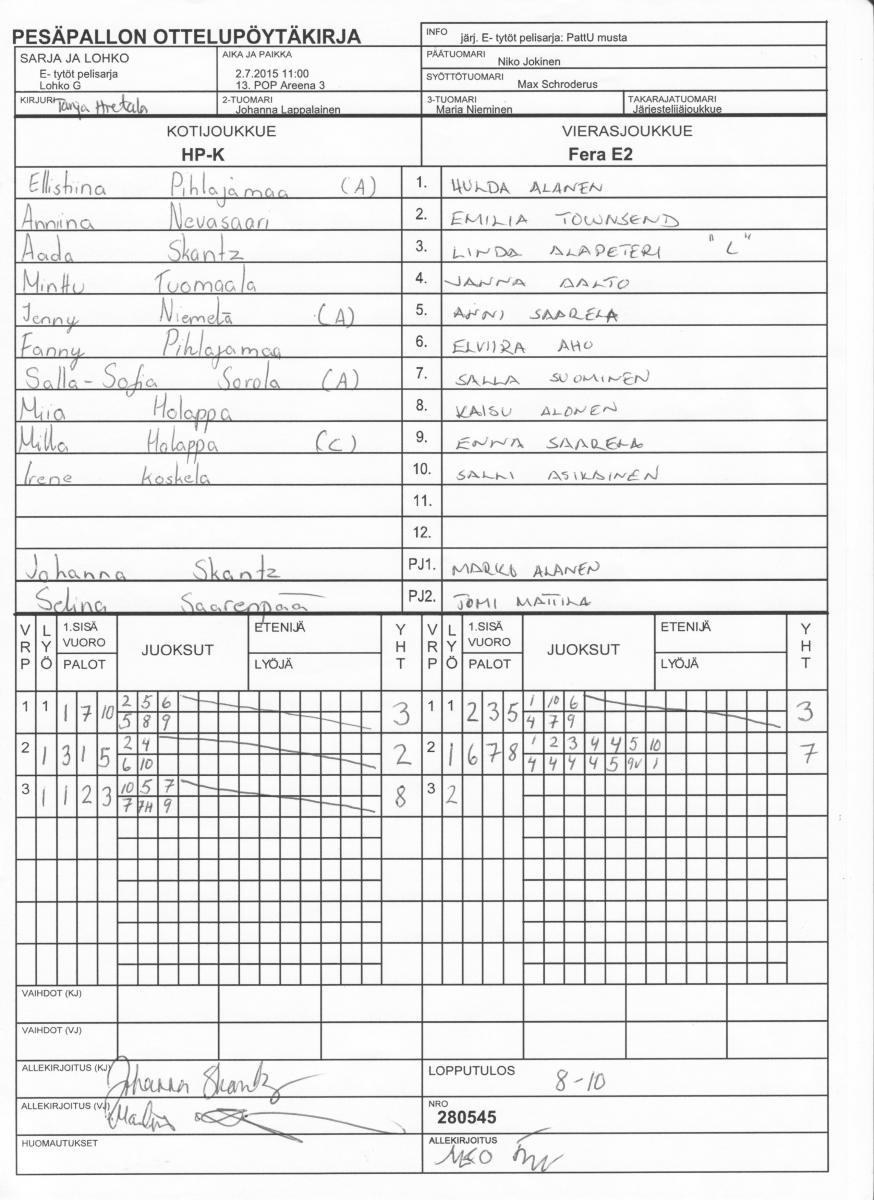 PESÄPALLON OTTELUPÖYTÄKIRJA
INFO järj. E- tytöt pelisarja: PattU musta
SARJA JA LOHKO
E- tytöt pelisarja
Lohko G
AIKA JA PAIKKA
2.7.2015 11:00
13. POP Areena 3
PÄÄTUOMARI
Niko Jokinen
SYÖTTÖTUOMARI
Max Schroderus
KIRJURI Tanja
2-TUOMARI
Johanna Lappalainen
3-TUOMARI
Maria Nieminen
TAKARAJATUOMARI
Järjestelijäjoukkue
KOTIJOUKKUE VIERASJOUKKUE
HP-K Fera E2
Ellishina Pihlajamaa (A) 1. HULDA ALANEN
Anniina Nevasaari 2. EMILIA TOWNSEND
Aada Skantz 3. LINDA ALAPETERI "L"
Minttu Tuomaala 4. JANNA AALTO
Jenny Niemelä (A) 5. ANNI SAARELA
Fanny Pihlajamaa 6. ELVIIRA AHO
Salla-Sofia Sorola (A) 7. SALLA SUOMINEN
Miia Holappa 8. KAISU ALONEN
Milla Holappa (C) 9. ENNA SAARELA
Irene Koskela 10. SALLI ASIKAINEN
11.
12.
Johanna Skantz PJ1. MARKO ALANEN
Selina Saarenpää PJ2. TOMI MATTILA
VRP LYÖ 1.SISÄ VUORO PALOT JUOKSUT ETENIJÄ LYÖJÄ YHT VRP LYÖ 1.SISÄ VUORO PALOT JUOKSUT ETENIJÄ LYÖJÄ YHT
1 1 1 7 10 2 5 6 3 1 1 2 3 5 1 10 6 3
5 8 9 4 7 9
2 1 3 1 5 2 4 2 2 1 6 7 8 1 2 3 4 4 5 10 7
6 10 4 4 4 4 5 9V 1
3 1 1 2 3 10 5 7 8 3 2
7 7H 9
VAIHDOT (KJ)
VAIHDOT (VJ)
ALLEKIRJOITUS (KJ) Johanna Skantz
LOPPUTULOS 8-10
ALLEKIRJOITUS (VJ)
NRO
280545
HUOMAUTUKSET
ALLEKIRJOITUS